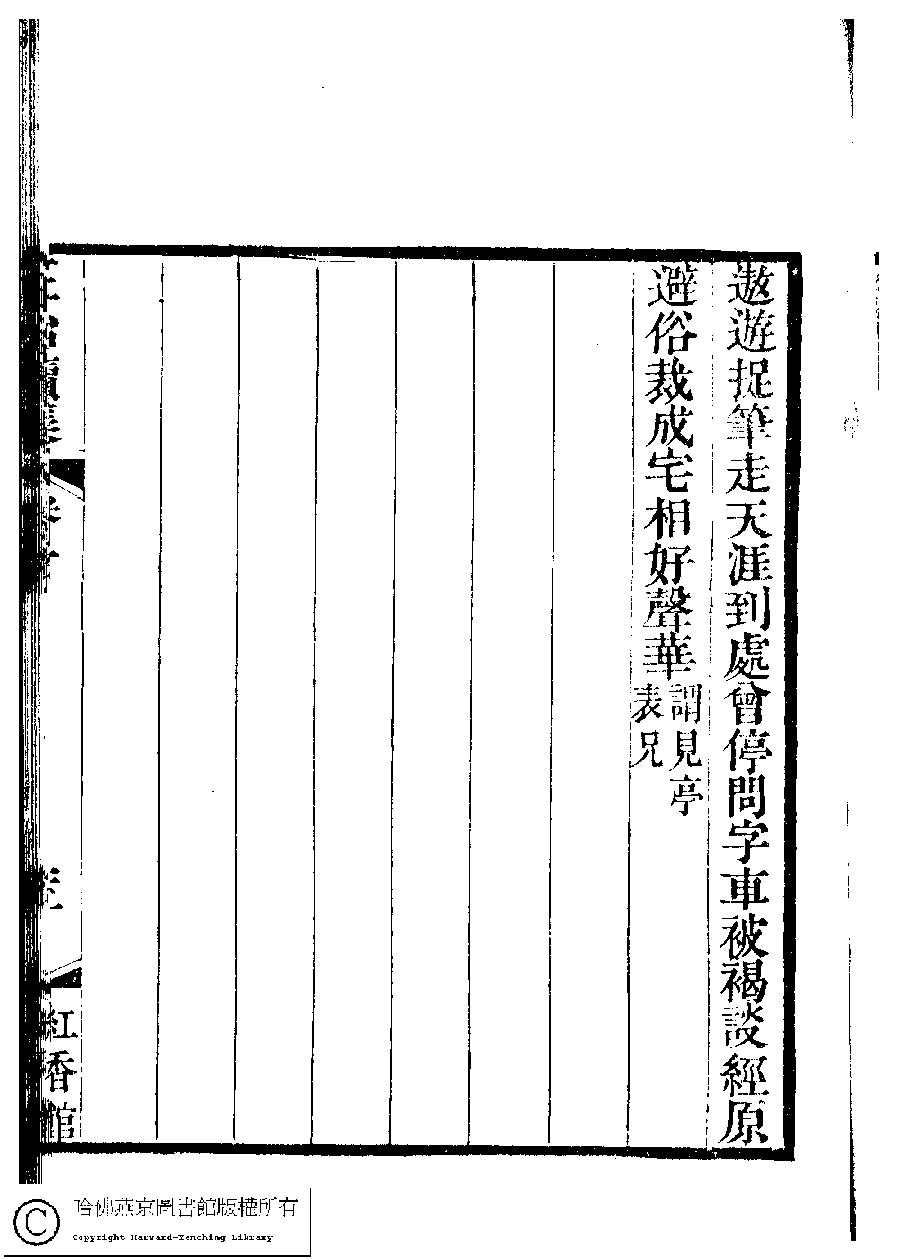 遨遊捉筆走天涯到處曾停問字車被褐談經原
避俗裁成宅相好聲華謂見亭
表兄
紅香館
哈佛燕京圖書館版權所有
Copyright Harvard-Yenching Library